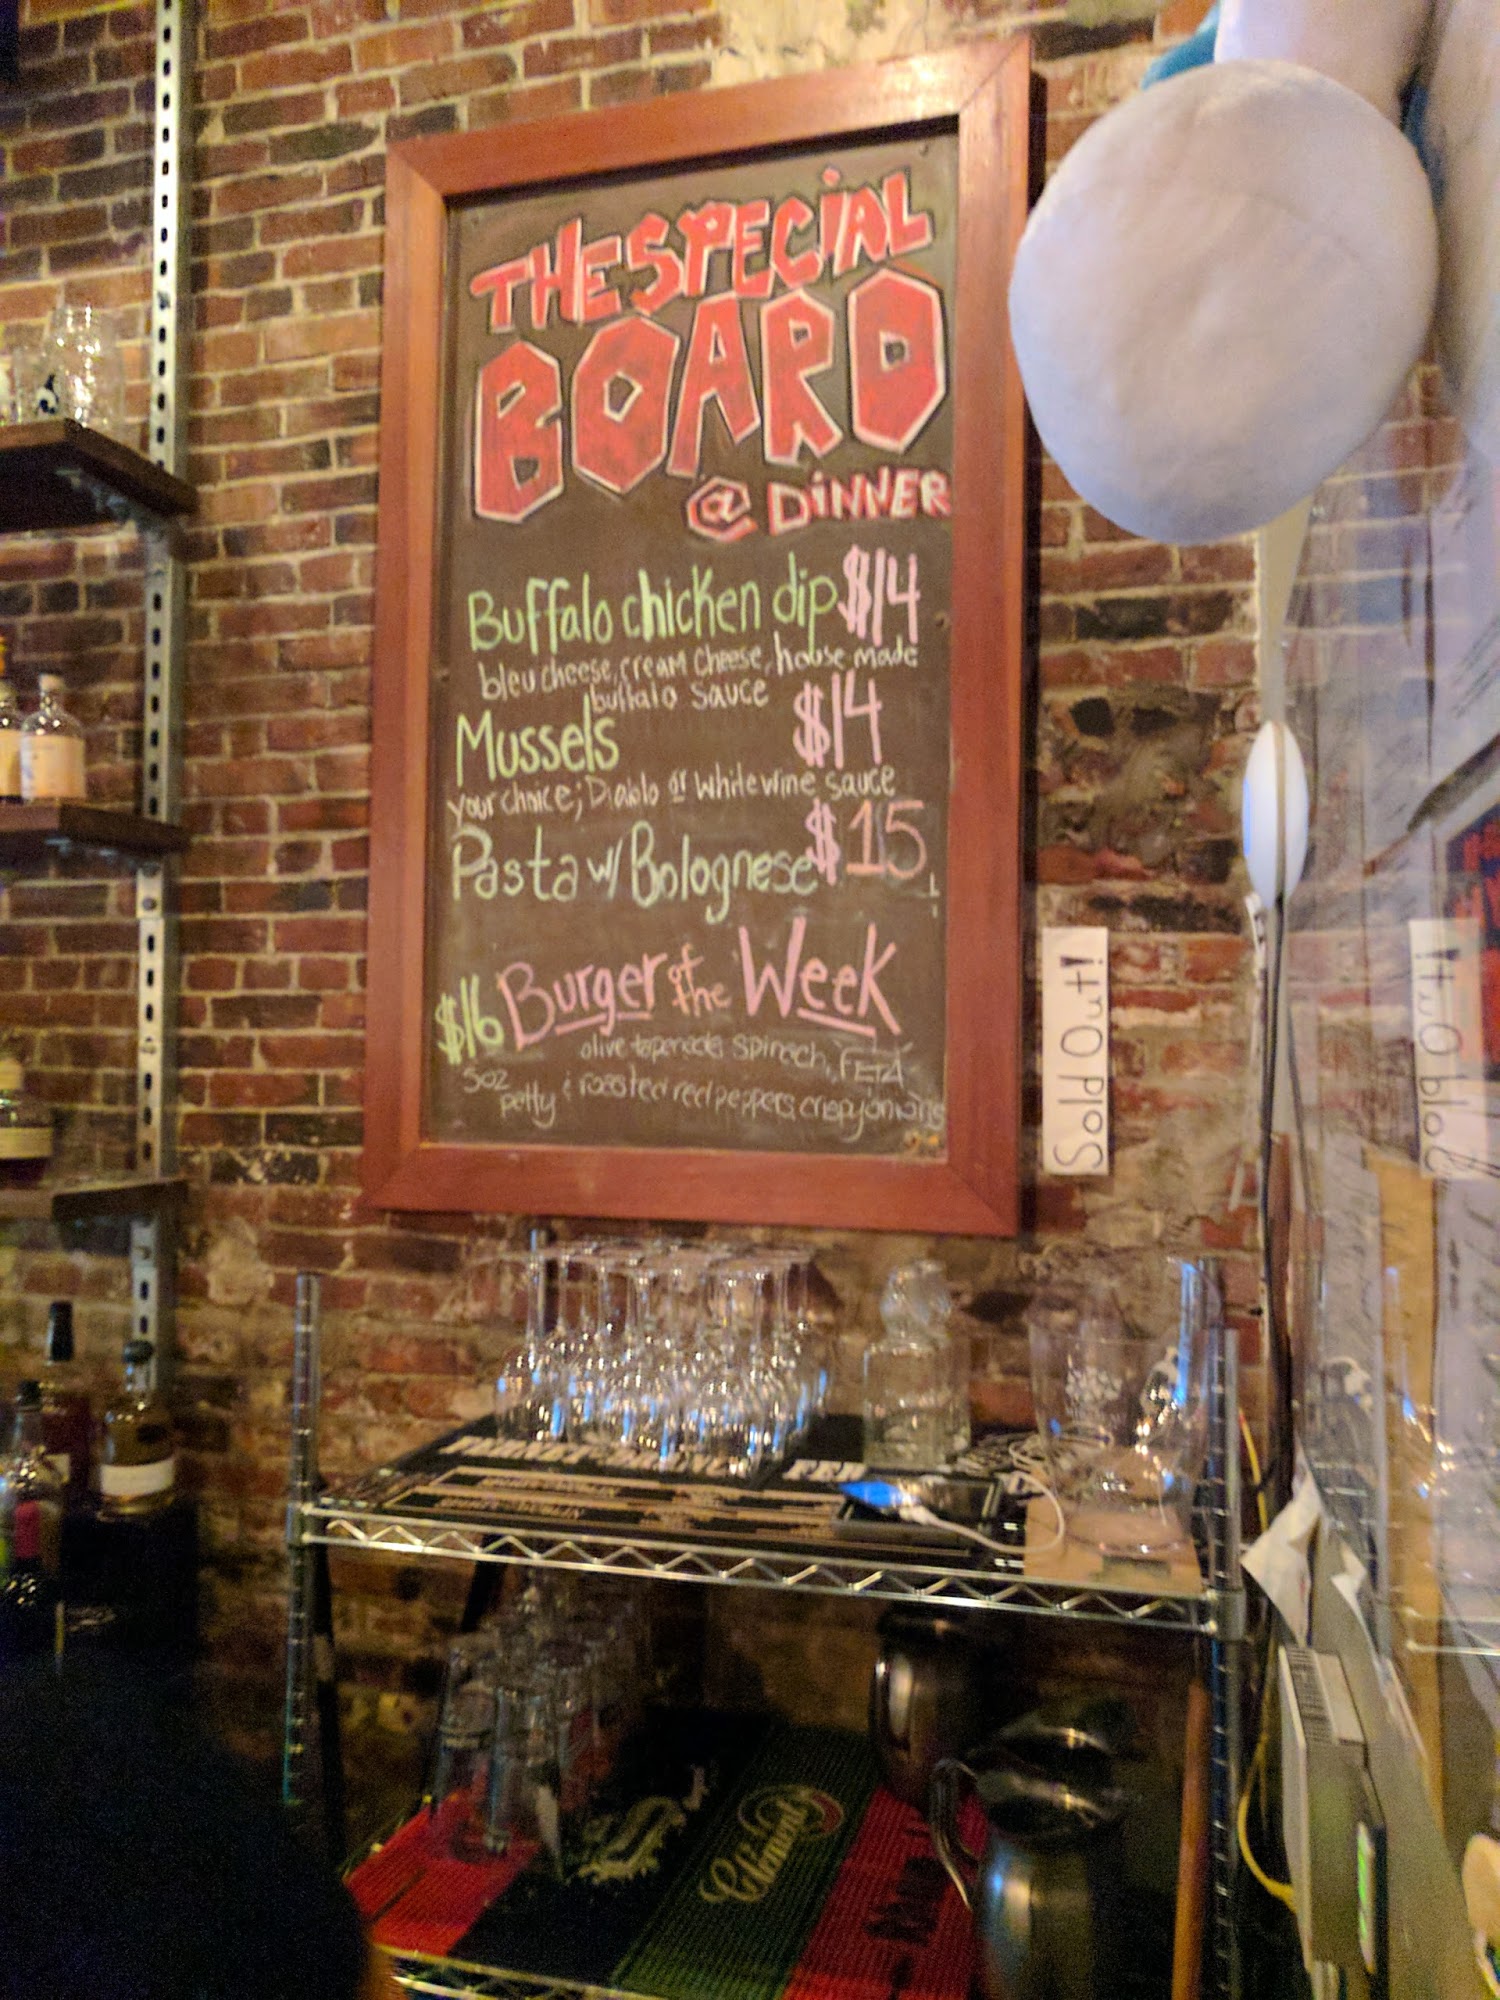 THE SPECIAL
BOARD
@ DINNER
Buffalo chicken dip $14
bleu cheese, cream cheese, house made
buffalo sauce
Mussels $14
your choice; Diablo or white wine sauce
Pasta w/ Bolognese $15
$16 Burger of the Week
olive tapenade spinach, FETA
5oz patty & roasted red peppers, crispy onions
Sold Out!
Sold Out!
FERNET-BRANCA
FER
Clément